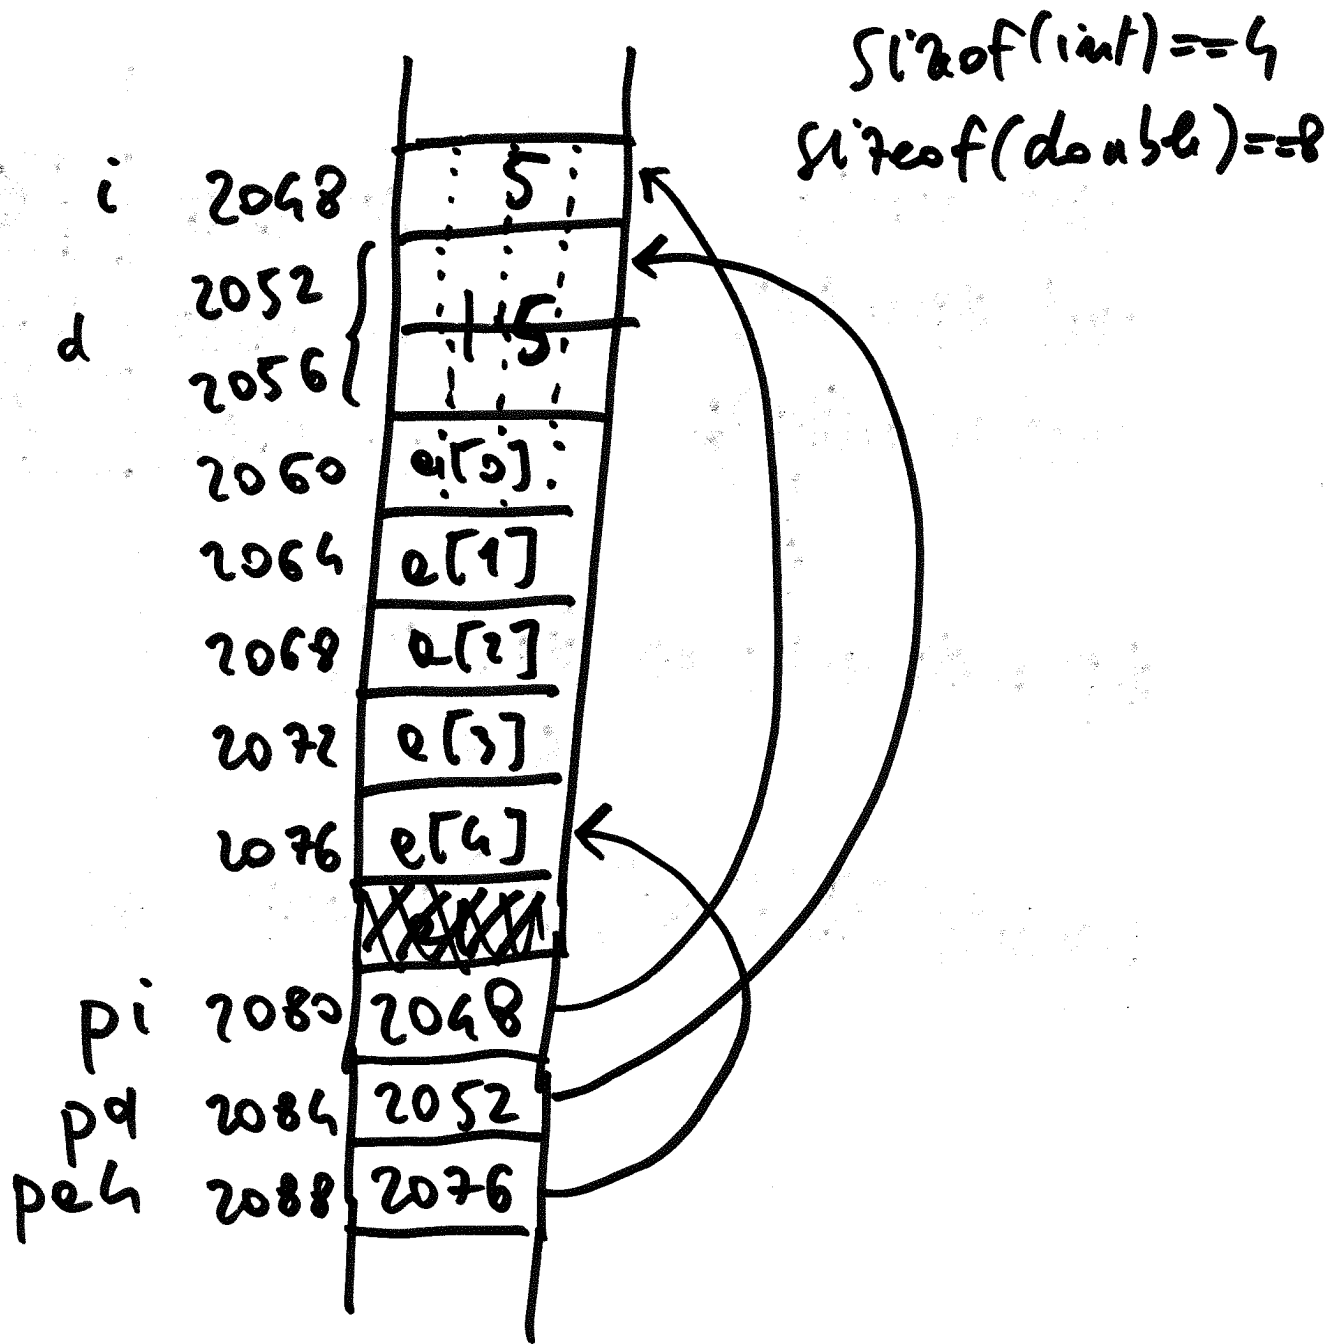 sizeof(int)==4
sizeof(double)==8
i 2048 5
2052
d 1.5
2056
2060 a[0]
2064 a[1]
2068 a[2]
2072 a[3]
2076 a[4]
pi 2080 2048
pd 2084 2052
pa4 2088 2076